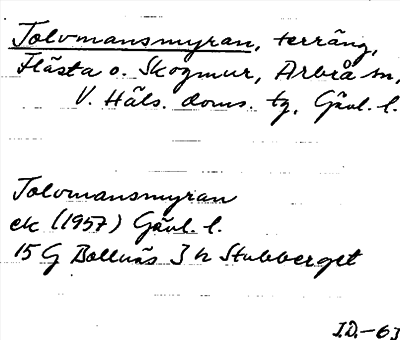 Tolvmansmyran, terräng,
Flästa o. Skogmur, Arbrå sn,
V. Häls. doms. tg, Gävl. l.
Tolvmansmyran
ek (1957) Gävl. l.
15 G Bollnäs 3 h Stubberget
I.D.-63